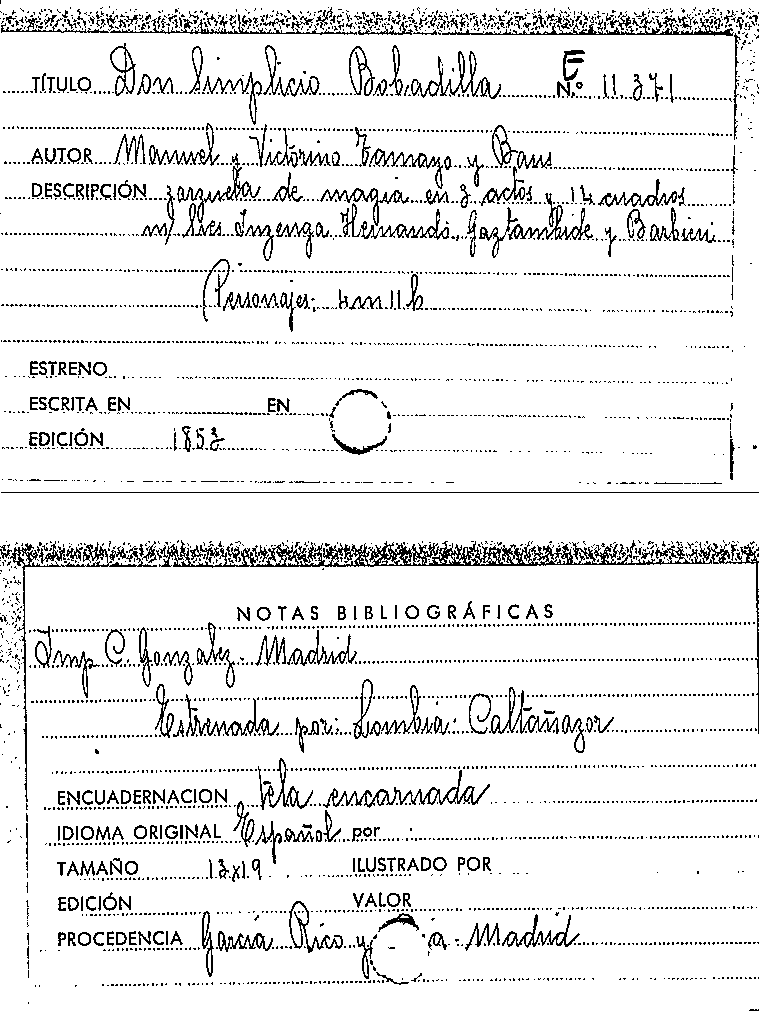 TÍTULO Don Simplicio Bobadilla E N.º 11.371
AUTOR Manuel y Victorino Tamayo y Baus
DESCRIPCIÓN zarzuela de magia en 3 actos y 14 cuadros
m/ Sres Inzenga Hernando, Gaztambide y Barbieri
Personajes: 4m 11h
ESTRENO
ESCRITA EN EN
EDICIÓN 1853
NOTAS BIBLIOGRÁFICAS
Imp C. Gonzalez. Madrid
Estrenada por: Lombia: Caltañazor
ENCUADERNACION tela encarnada
IDIOMA ORIGINAL Español por :
TAMAÑO 13x19 ILUSTRADO POR
EDICIÓN VALOR
PROCEDENCIA García Rico y a. Madrid